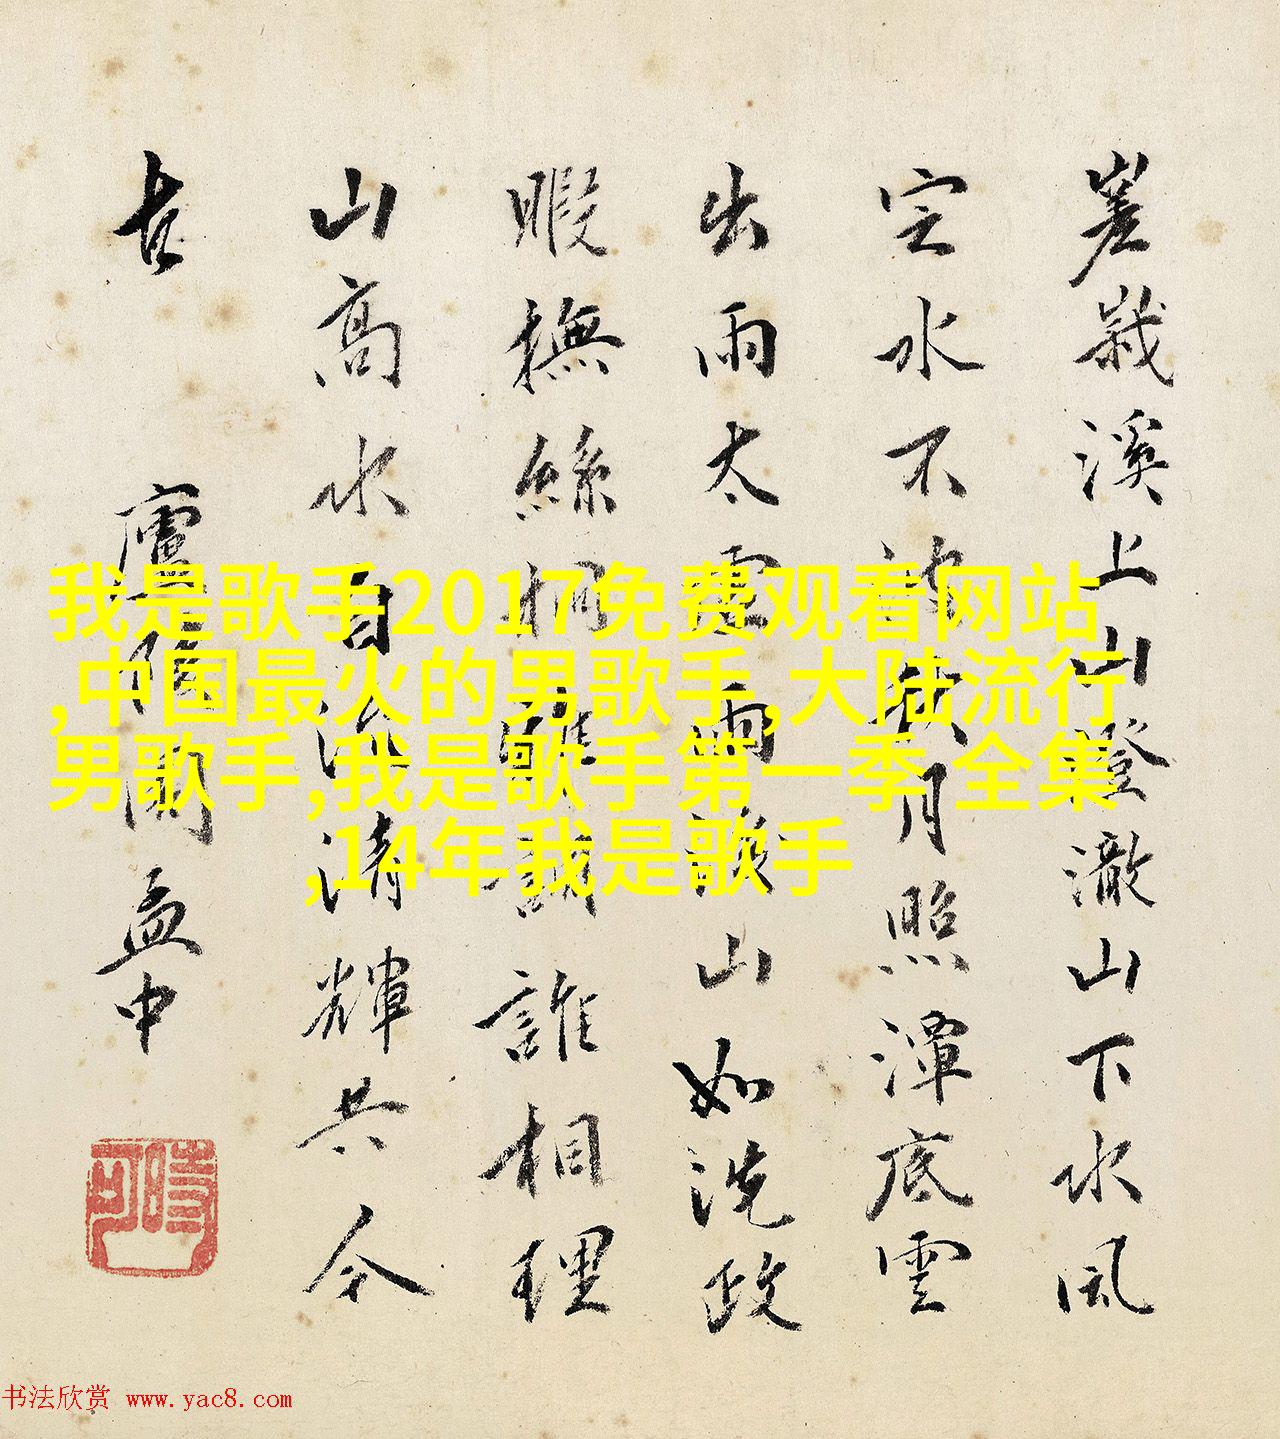 嵳峩溪上山澄澈山下水風
定水不波秋月照潭底雲
出雨太虛雨後山如洗政
暇撫絲桐雅調誰相理
山高水自流清輝共今
古
廬陵周孟中
時可
我是歌手2017免费观看网站
,中国最火的男歌手,大陆流行
男歌手,我是歌手第一季 全集
,14年我是歌手
书法欣赏 www.yac8.com